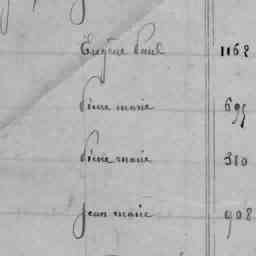 Eugène Paul 1162
Pierre marie 695
Pierre marie 380
Jean marie 908